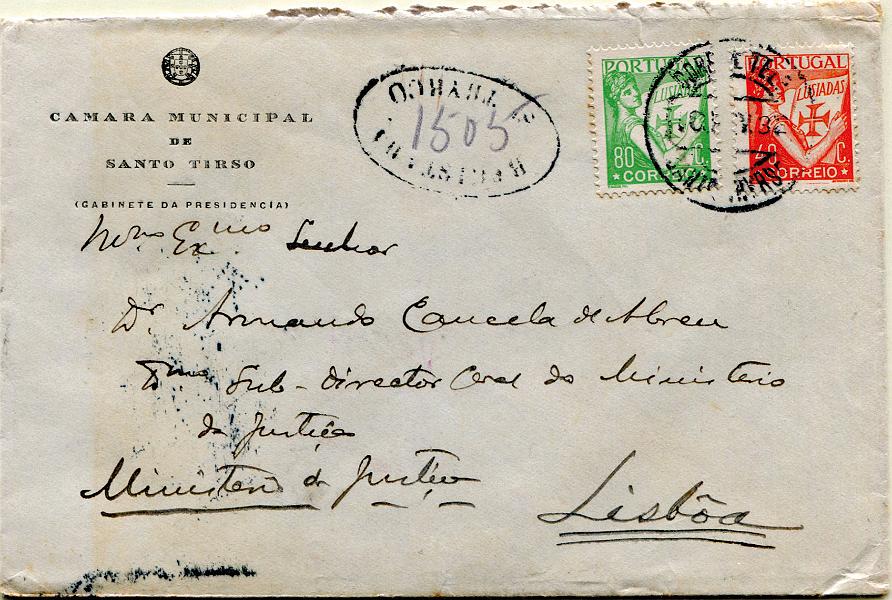 CAMARA MUNICIPAL
DE
SANTO TIRSO
(GABINETE DA PRESIDENCIA)
1505
PORTUGAL
LUSIADAS
80 C.
CORREIO
PORTUGAL
LUSIADAS
40 C.
CORREIO
Exmo Senhor
Dr. Armando Cancela de Abreu
Dmo Sub-Director Geral do Ministerio
da Justiça
Ministerio da Justiça
Lisbôa